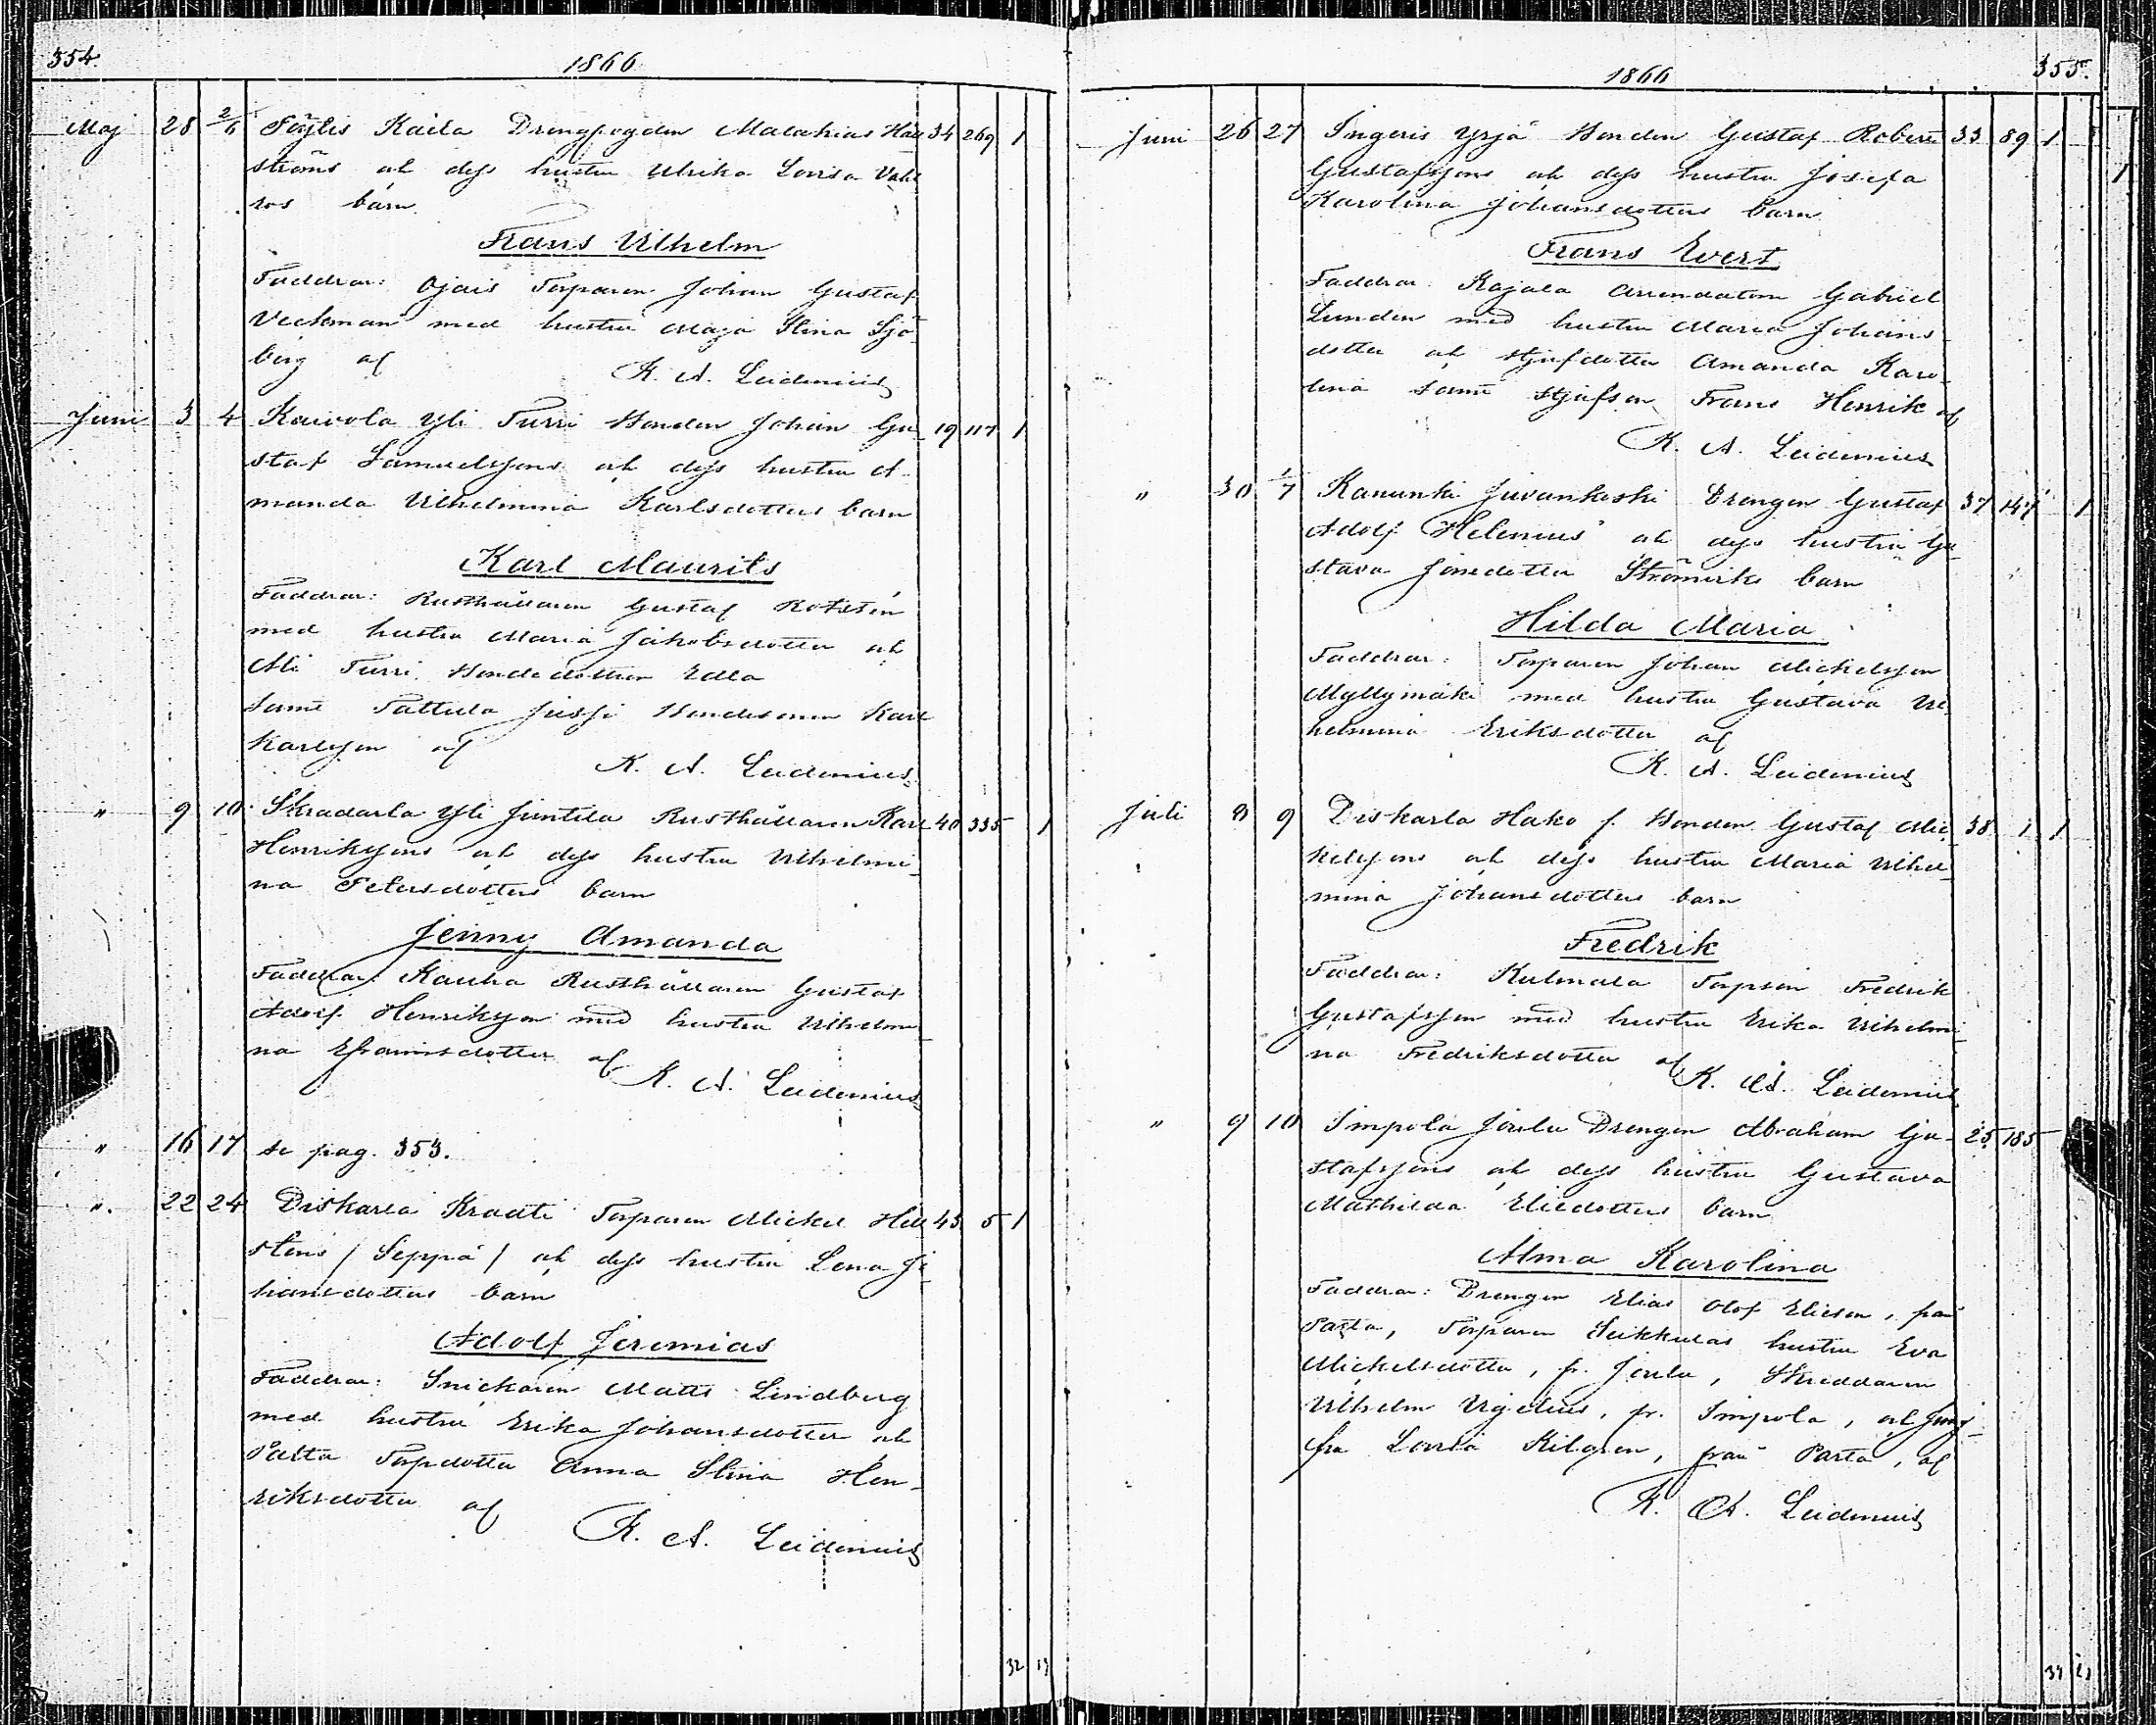 354.
1866
Maj 28 2/6 Töylis Kaila Drengfogden Malakias Häll 34 269 1
ströms och dess hustru Ulrika Lovisa Vahl
ros barn
Frans Vilhelm
Faddrar: Ojais Torparen Johan Gustaf
Veckman med hustru Maja Stina Sjö-
berg af
K. A. Leidenius
Juni 3 4 Kaivola Yli Turri Bonden Johan Gu- 19 117 1
staf Samuelssons och dess hustru A-
manda Vilhelmina Karlsdotters barn
Karl Maurits
Faddrar: Rusthållaren Gustaf Rotstén
med hustru Maria Jakobsdotter och
Ali Turri Bondedottren Edla
samt Pattula Jussi Bondesonen Karl
Karlsson af
K. A. Leidenius
" 9 10 Skradarla Yli Juntila Rusthållaren Karl 40 335 1
Henrikssons och dess hustru Vilhelmi-
na Petersdotters barn
Jenny Amanda
Faddrar: Kauha Rusthållaren Gustaf
Adolf Henriksson med hustru Vilhelmi-
na Efraimsdotter af
K. A. Leidenius
" 16 17 se pag. 353.
" 22 24 Diskarla Kraati Torparen Mickel Hell 43 5 1
stens / Seppä / och dess hustru Lena Jo-
hansdotters barn
Adolf Jeremias
Faddrar: Snickaren Matts Lindberg
med hustru Erika Johansdotter och
Palta Torpdotter Anna Stina Hen-
riksdotter af
K. A. Leidenius
32 13
355.
1866
Juni 26 27 Ingeris Yrjä Bonden Gustaf Robert 33 89 1
Gustafssons och dess hustru Josefa
Karolina Johansdotters barn
Frans Evert
Faddrar: Kajala Arrendatorn Gabriel
Lunden med hustru Maria Johans-
dotter och styfdotter Amanda Karo-
lina samt styfson Frans Henrik af
K. A. Leidenius
" 30 1/7 Kanunki Juvankoski Drengen Gustaf 37 147 1
Adolf Helenius och dess hustru Gu-
stava Jonedotter Strömviks barn
Hilda Maria
Faddrar: Torparen Johan Mickelsson
Myllymäki med hustru Gustava Vil-
helmina Eriksdotter af
K. A. Leidenius
Juli 8 9 Diskarla Hako f. Bonden Gustaf Mic- 38 1 1
kelssons och dess hustru Maria Vilhel-
mina Johansdotters barn
Fredrik
Faddrar: Kulmala Torpson Fredrik
Gustafsson med hustru Erika Vilhelmi-
na Fredriksdotter af
K. A. Leidenius
" 9 10 Impola Joulu Drengen Abraham Gu- 25 185
stafssons och dess hustru Gustava
Mathilda Eliedotters barn
Alma Karolina
Faddrar: Drengen Elias Olof Elieson, från
Parta, Torparen Seikkulas hustru Eva
Mickelsdotter, fr. Joulu, Skreddaren
Vilhelm Vigelius, fr. Impola, och Jung-
fru Lovisa Kilgren, från Parta, af
K. A. Leidenius